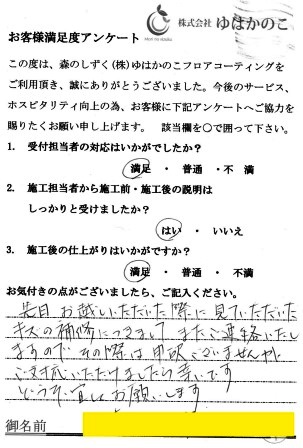 株式会社 ゆはかのこ
お客様満足度アンケート
この度は、森のしずく(株)ゆはかのこフロアコーティングを
ご利用頂き、誠にありがとうございました。今後のサービス、
ホスピタリティ向上の為、お客様に下記アンケートへご協力を
賜りたくお願い申し上げます。 該当欄を○で囲って下さい。
1. 受付担当者の対応はいかがでしたか?
満足 ・ 普通 ・ 不 満
2. 施工担当者から施工前・施工後の説明は
しっかりと受けましたか?
はい ・ いいえ
3. 施工後の仕上がりはいかがですか?
満足 ・ 普通 ・ 不満
お気付きの点がございましたら、ご記入ください。
先日、お越しいただいた際に見ていただいた
キズの補修につきまして、またご連絡いたし
ますので、その際は申訳ございませんが、
ご対応いただけましたら幸いです
どうぞ、宜しくお願いします
御名前